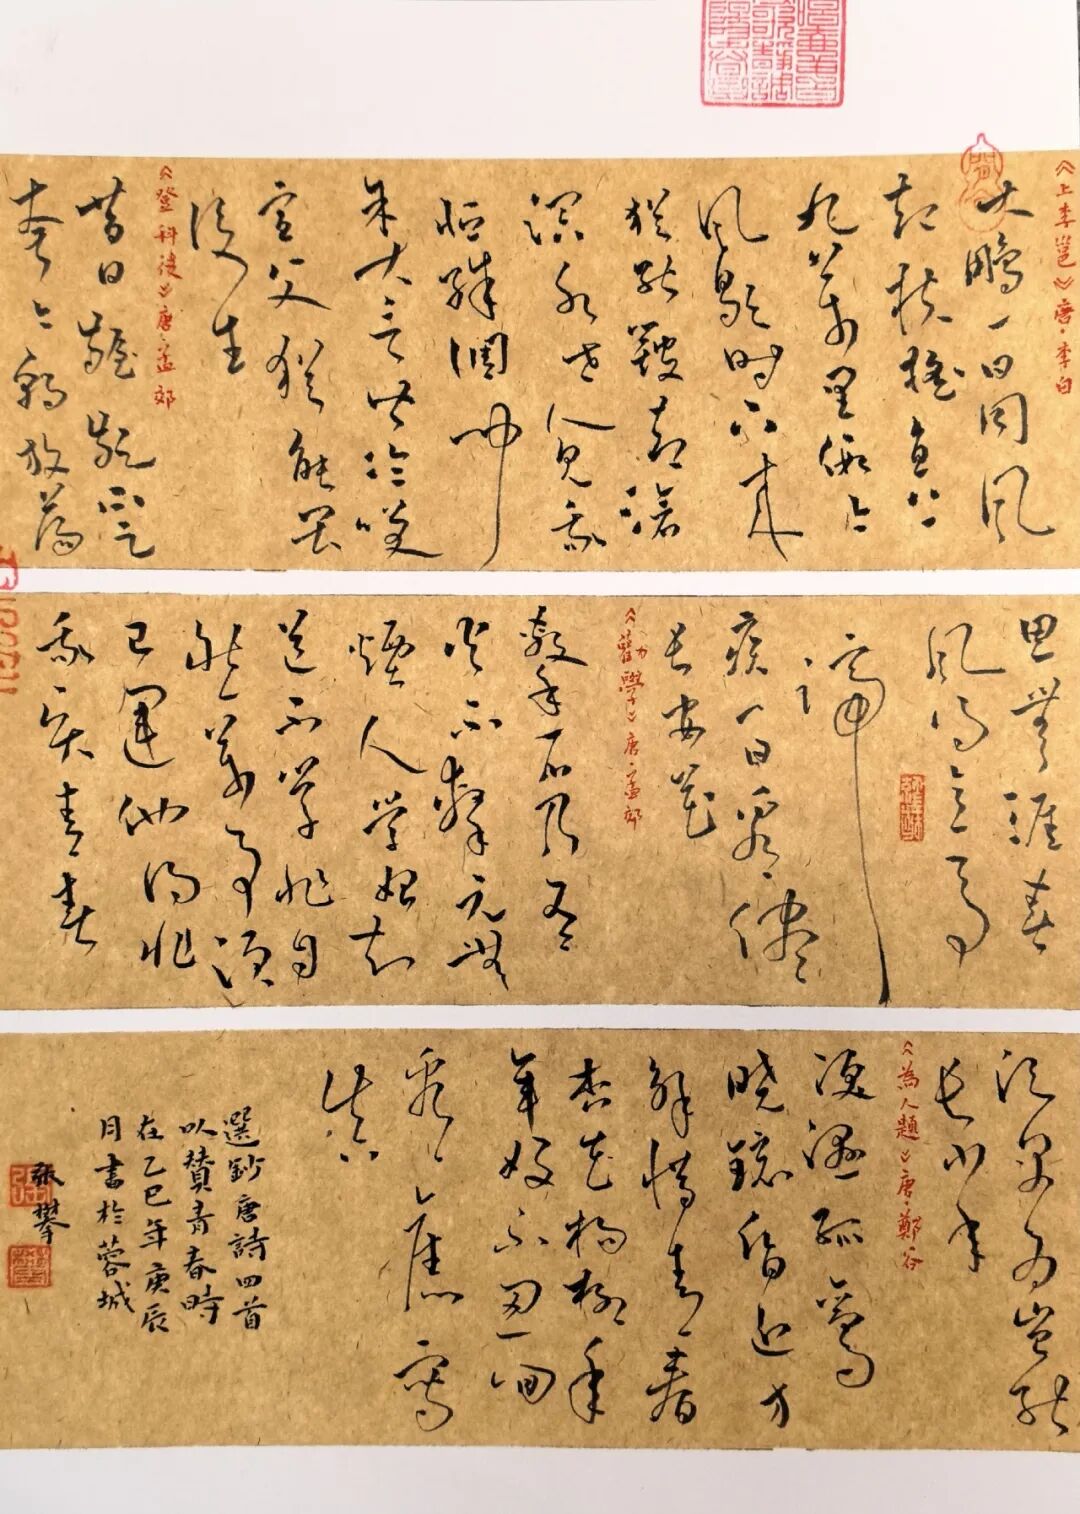 《上李邕》唐·李白
大鵬一日同風
起扶搖直上
九萬里假令
風歇時下來
猶能簸却滄
溟水世人見我
恒殊調聞
余大言皆冷笑
宣父猶能畏
後生
《登科後》唐·孟郊
昔日齷齪不足
夸今朝放蕩
思無涯春
風得意馬
蹄
疾一日看儘
長安花
《勸學》唐·孟郊
擊石乃有
火不擊元無
煙人學始知
道不學非自
然萬事須
己運他得非
我賢青春
須早為豈能
長少年
《為人題》唐·鄭谷
淚濕孤鸞
曉鏡昏近方
解惜青春
杏花楊柳年
年好不忍回
看舊寫
真
選鈔唐詩四首
以贊青春時
在乙巳年庚辰
月書於蓉城
張攀